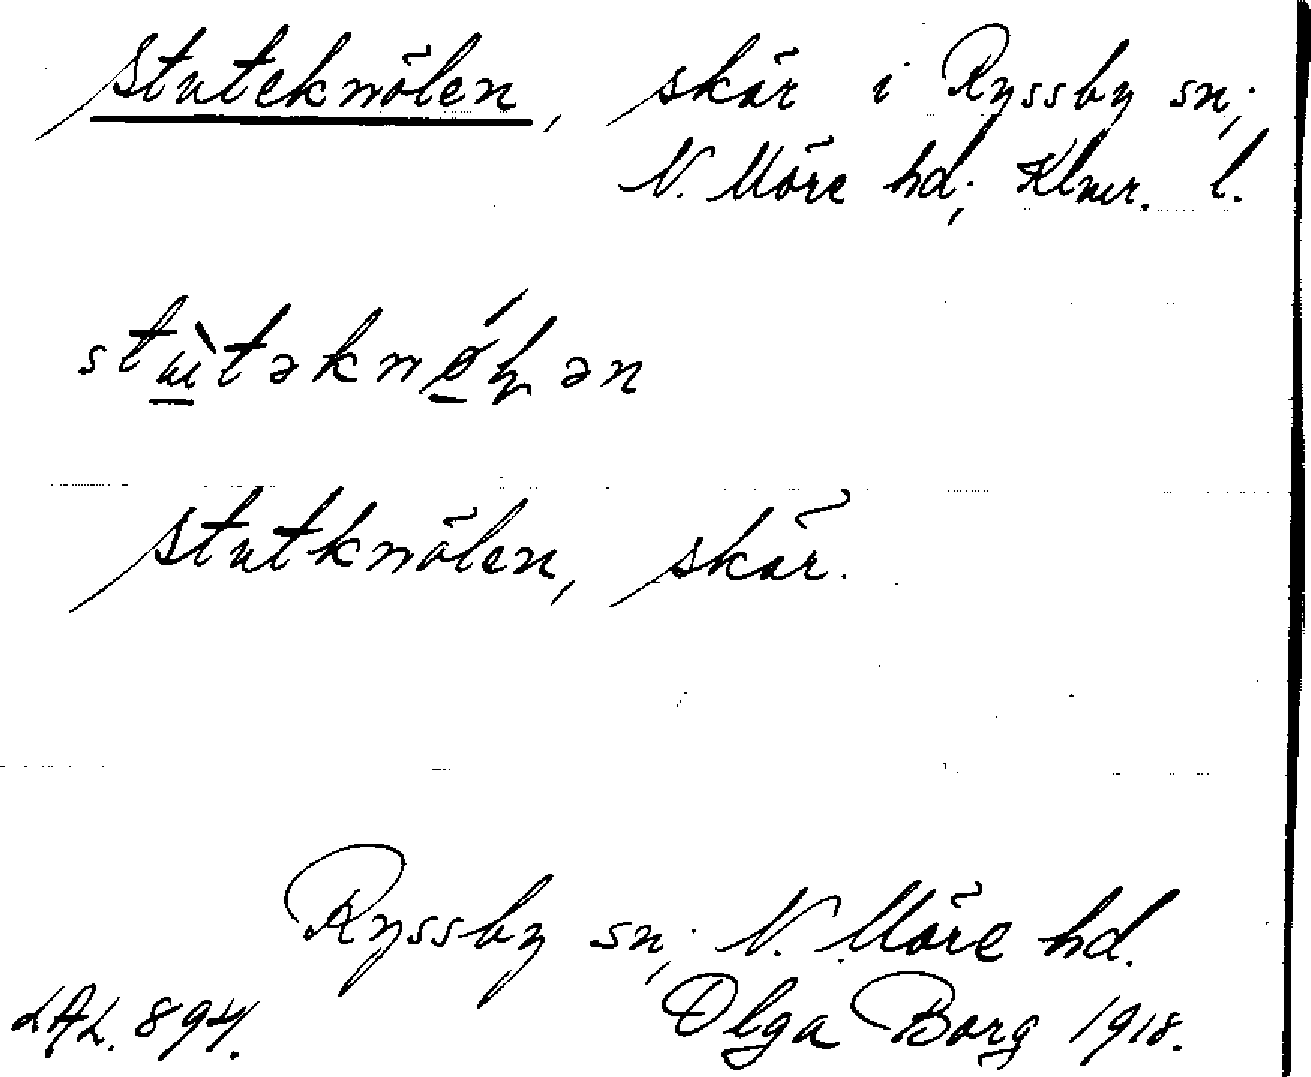 Stuteknölen, skär i Ryssby sn;
N. Möre hd; Klmr. l.
stùtəknǿɫən
Stutknölen, skär.
Ryssby sn; N. Möre hd.
LAL. 894. Olga Borg 1918.